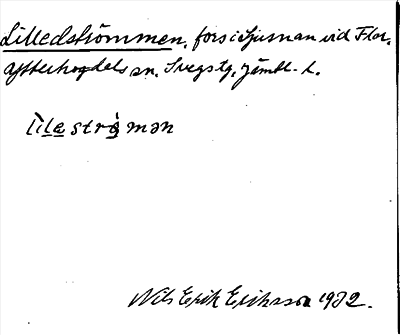 Lilledströmmen, fors i Ljusnan vid Flor,
Ytterhogdals sn. Svegs tg, Jämtl. l.
lìlaströ̀mən
Nils Erik Eriksson 1932.